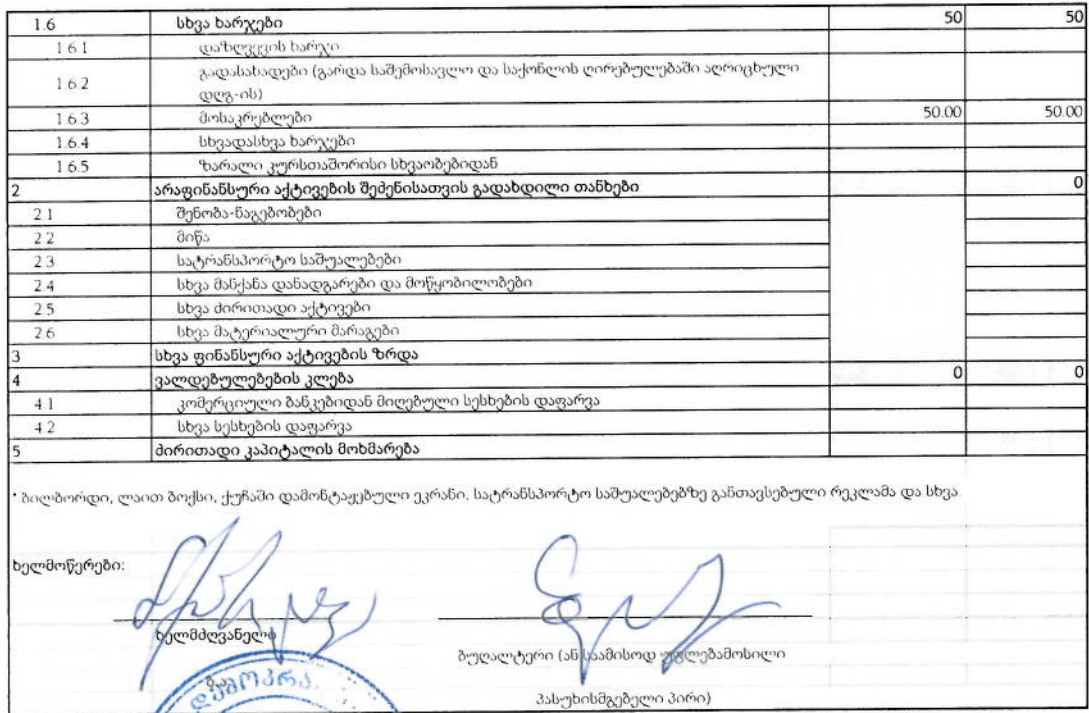 1.6 სხვა ხარჯები 50 50
1.6.1 დაზღვევის ხარჯი
1.6.2 გადასახადები (გარდა საშემოსავლო და საქონლის ღირებულებაში აღრიცხული
დღგ-ის)
1.6.3 მოსაკრებლები 50.00 50.00
1.6.4 სხვადასხვა ხარჯები
1.6.5 ზარალი კურსთაშორისი სხვაობებიდან
2 არაფინანსური აქტივების შეძენისათვის გადახდილი თანხები 0
2.1 შენობა-ნაგებობები
2.2 მიწა
2.3 სატრანსპორტო საშუალებები
2.4 სხვა მანქანა დანადგარები და მოწყობილობები
2.5 სხვა ძირითადი აქტივები
2.6 სხვა მატერიალური მარაგები
3 სხვა ფინანსური აქტივების ზრდა
4 ვალდებულებების კლება 0 0
4.1 კომერციული ბანკებიდან მიღებული სესხების დაფარვა
4.2 სხვა სესხების დაფარვა
5 ძირითადი კაპიტალის მოხმარება
* ბილბორდი, ლაით ბოქსი, ქუჩაში დამონტაჟებული ეკრანი, სატრანსპორტო საშუალებებზე განთავსებული რეკლამა და სხვა
ხელმოწერები:
ხელმძღვანელი
ბუღალტერი (ან საამისოდ უფლებამოსილი
ბ.ა
პასუხისმგებელი პირი)